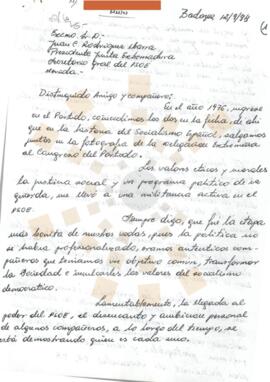 Badajoz 12/9/94
Excmo. S.D.
Juan C. Rodríguez Ibarra
Presidente Junta Extremadura
Secretario Gral del PSOE
Mérida.
Distinguido Amigo y compañero:
En el año 1976, ingrese
en el Partido, coincidimos los dos en la fecha, de ahí
que en la historia del Socialismo Español, salgamos
juntos en la fotografía de la delegación Extremeña
al Congreso del Partido.
Los valores eticos y morales
la justicia social y un programa político de iz
quierda, me llevó a una militancia activa en el
PSOE.
Siempre digo, que fué la etapa
mas bonita de muchas vidas, pues la política no
se habia profesionalizado, eramos autenticos com-
pañeros que teniamos un objetivo comun, transformar
la Sociedad e inculcarles los valores del socialismo
democratico.
Lamentablemente, la llegada al
poder del PSOE, el desencanto y ambicion personal
de algunos compañeros, a lo largo del tiempo, se
está demostrando quien es cada uno.